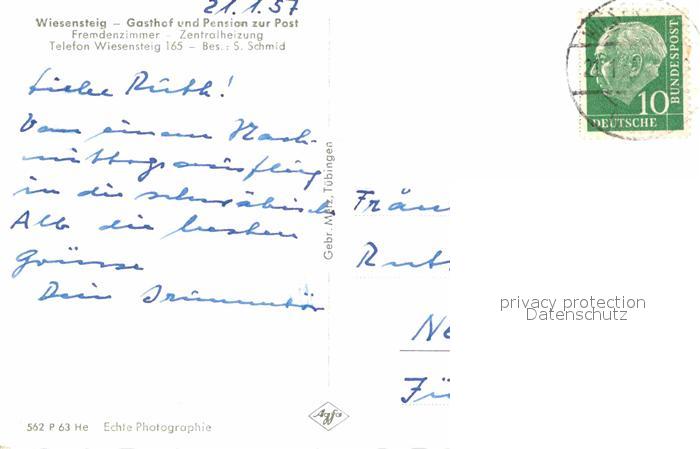 21.1.57
Wiesensteig – Gasthof und Pension zur Post
Fremdenzimmer – Zentralheizung
Telefon Wiesensteig 165 – Bes.: S. Schmid
Liebe Ruth!
Von einem Nach-
mittagsausflug
in die schwäbische
Alb die besten
Grüsse
Dein
Gebr. Metz, Tübingen
562 P 63 He Echte Photographie
Agfa
10
DEUTSCHE
BUNDESPOST
Fräu
Rut
Ne
privacy protection
Datenschutz